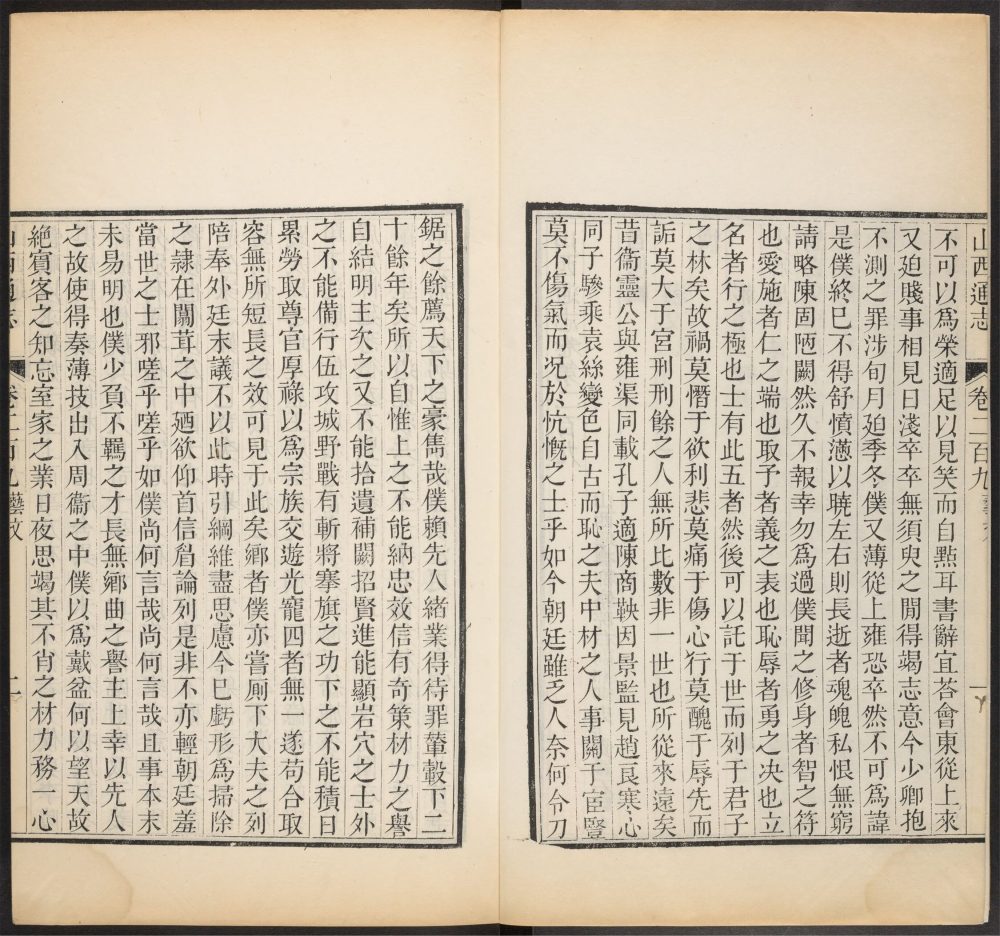 山西通志 卷二百九
不可以爲榮適足以見笑而自㸃耳書辭宜荅會東從上來
又廹賤事相見日淺卒卒無須臾之閒得竭志意今少卿抱
不測之罪涉旬月廹季冬僕又薄從上雍恐卒然不可爲諱
是僕終已不得舒憤懣以曉左右則長逝者魂魄私恨無窮
請略陳固陋闕然久不報幸勿爲過僕聞之修身者智之符
也愛施者仁之端也取予者義之表也恥辱者勇之决也立
名者行之極也士有此五者然後可以託于世而列于君子
之林矣故禍莫憯于欲利悲莫痛于傷心行莫醜于辱先而
詬莫大于宮刑刑餘之人無所比數非一世也所從來遠矣
昔衞靈公與雍渠同載孔子適陳商鞅因景監見趙良寒心
同子驂乘袁絲變色自古而恥之夫中材之人事關于宦豎
莫不傷氣而况於忼慨之士乎如今朝廷雖乏人奈何令刀
一
鋸之餘薦天下之豪雋哉僕賴先人緒業得待罪輦轂下二
十餘年矣所以自惟上之不能納忠效信有奇策材力之譽
自結明主次之又不能拾遺補闕招賢進能顯岩穴之士外
之不能備行伍攻城野戰有斬將搴旗之功下之不能積日
累勞取尊官厚祿以爲宗族交遊光寵四者無一遂苟合取
容無所短長之效可見于此矣鄉者僕亦嘗厠下大夫之列
陪奉外廷末議不以此時引綱維盡思慮今已虧形爲掃除
之隸在闒茸之中廼欲仰首信眉論列是非不亦輕朝廷羞
當世之士邪嗟乎嗟乎如僕尚何言哉尚何言哉且事本末
未易明也僕少負不羈之才長無鄉曲之譽主上幸以先人
之故使得奏薄技出入周衞之中僕以爲戴盆何以望天故
絶賓客之知忘室家之業日夜思竭其不肖之材力務一心
山西通志 卷二百九 藝文 二